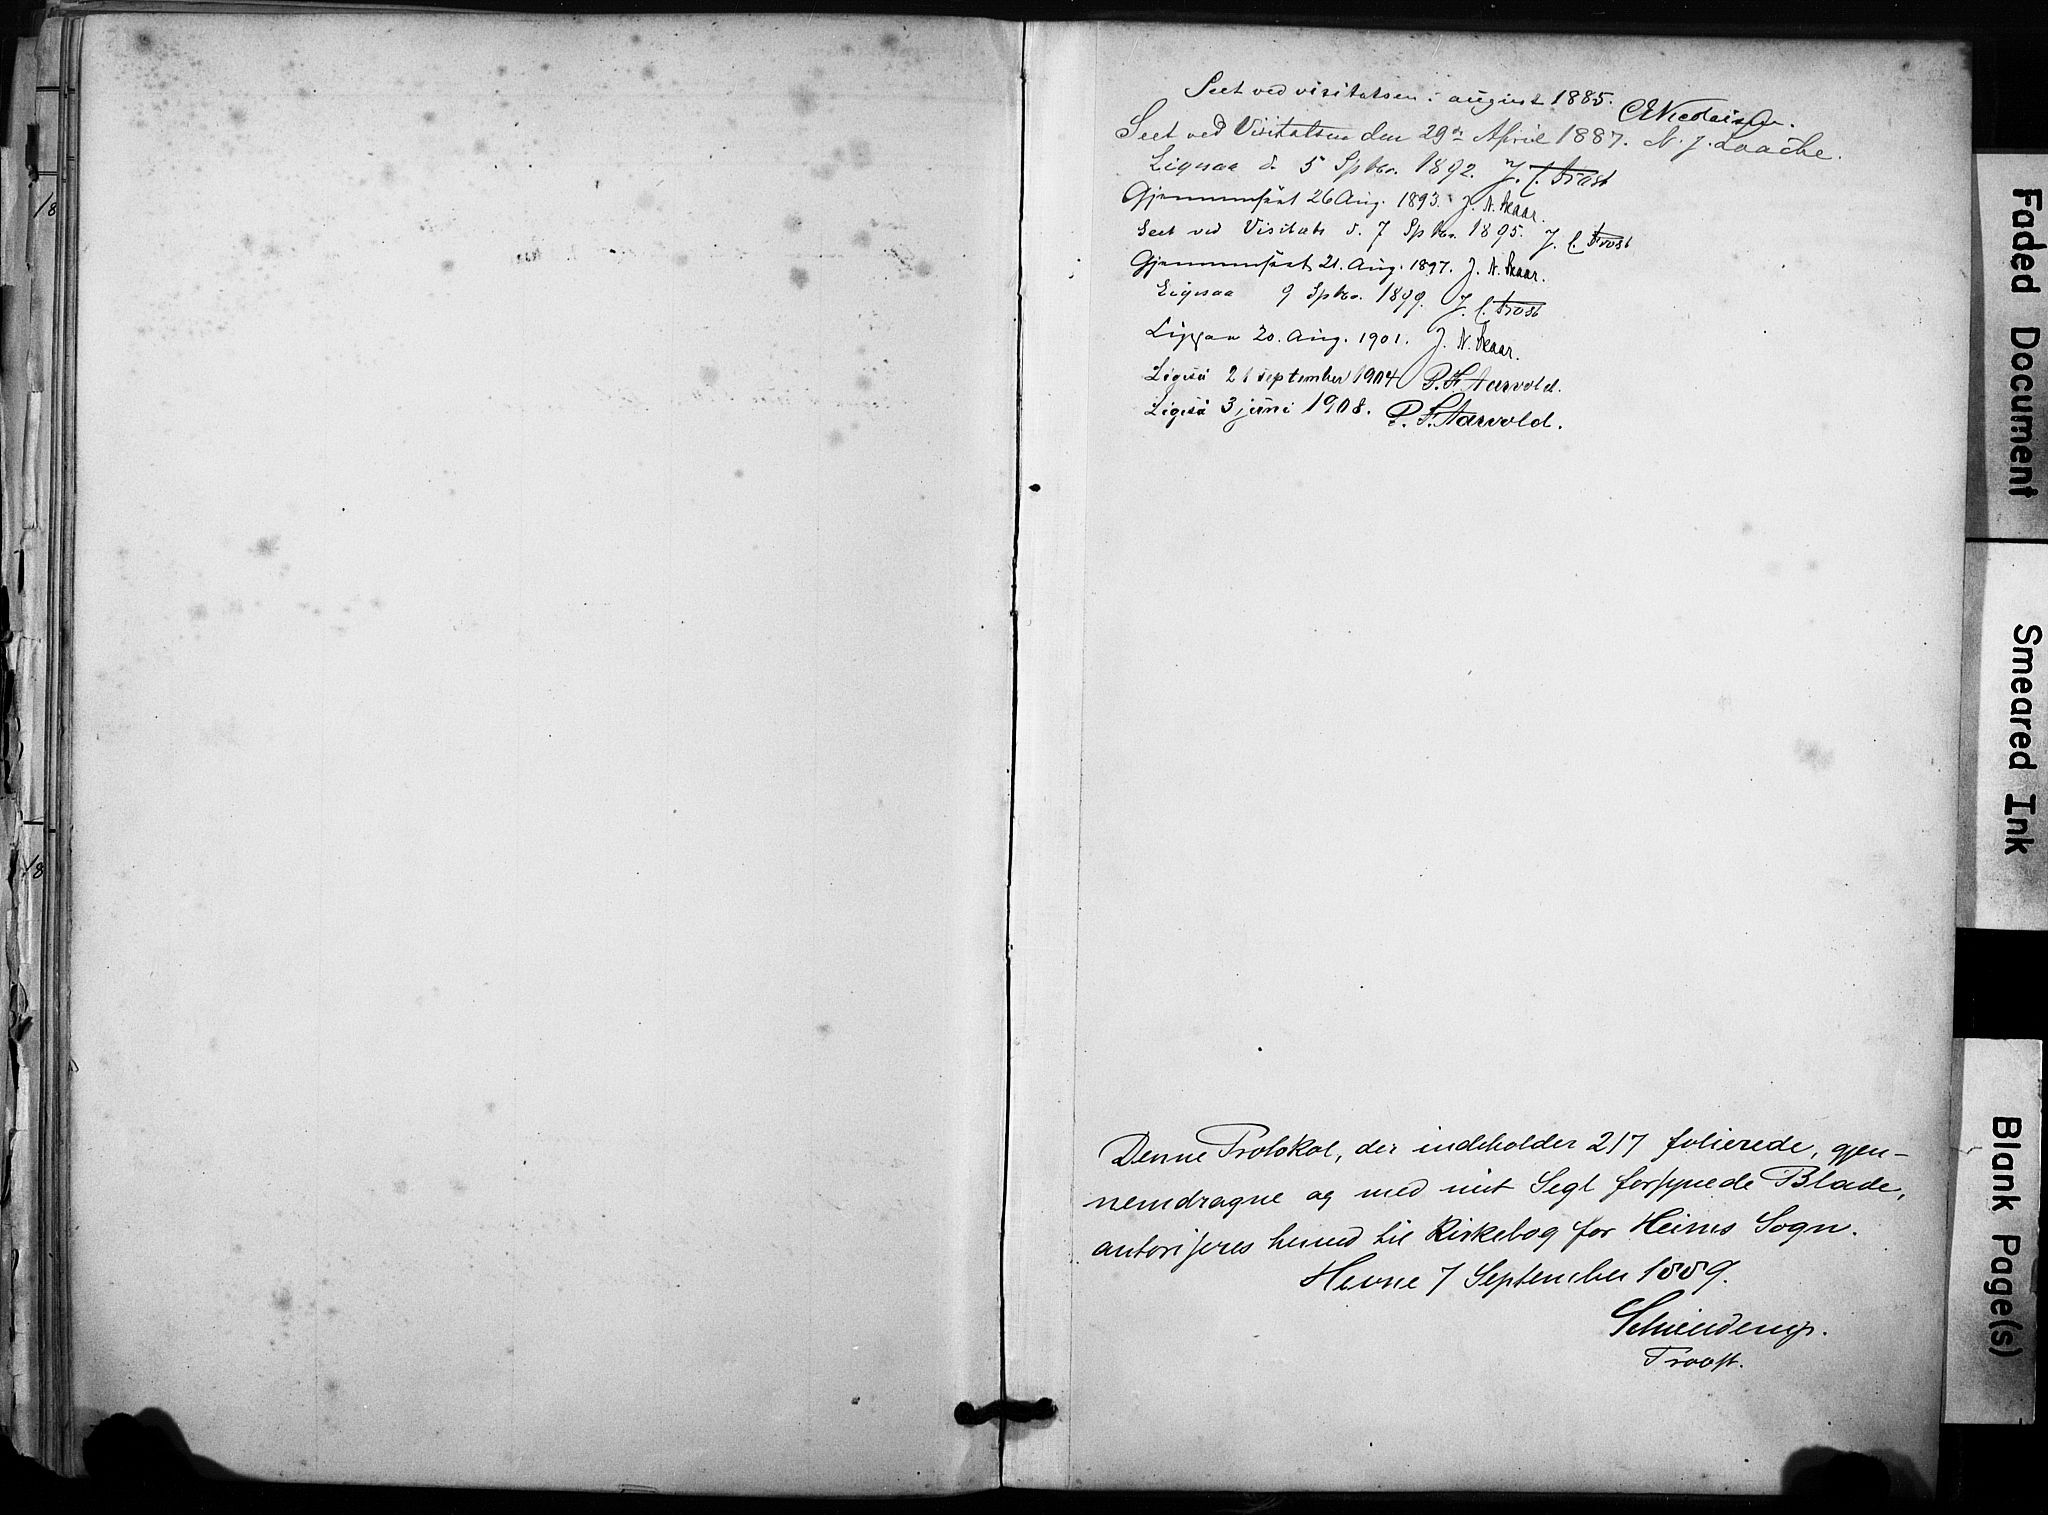 Seet ved visitatsen i august 1885. C Nicolaisen.
Seet ved Visitatsen den 29de April 1887. N. J. Laache.
Ligesaa d. 5 Sptbr. 1892. J. C. Frost
Gjennemseet 26 Aug. 1893. J. N. Skaar.
Seet ved Visitats d. 7 Sptbr. 1895. J. C. Frost
Gjennemseet 21. Aug. 1897. J. N. Skaar.
Ligesaa 9 Sptbr. 1899. J. C. Frost
Ligesaa 20. Aug. 1901. J. N. Skaar.
Ligeså 21 september 1904 P. H. Aarvold.
Ligeså 3 juni 1908. P. H. Aarvold.
Denne Protokol, der indeholder 217 folierede, gjen-
nemdragne og med mit Segl forsynede Blade,
autoriseres herved til Kirkebog for Heims Sogn.
Hevne 7 September 1889.
Provst.
/8
/8
Faded Document
Smeared Ink
Blank Page(s)